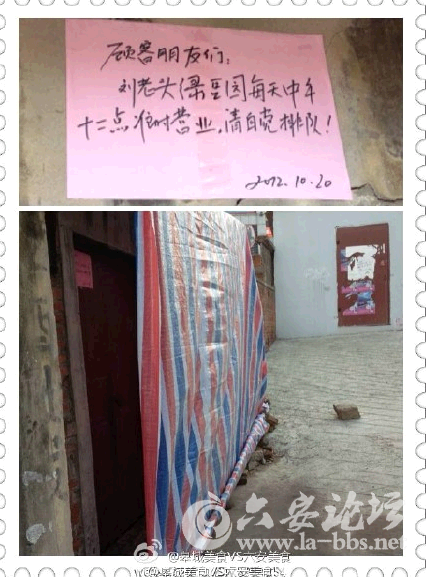 顾客朋友们：
刘老头绿豆圆每天中午
十二点准时营业，请自觉排队！
2012.10.20
六安论坛
www.la-bbs.net
@皋城美食VS六安美食
@皋城美食VS六安美食